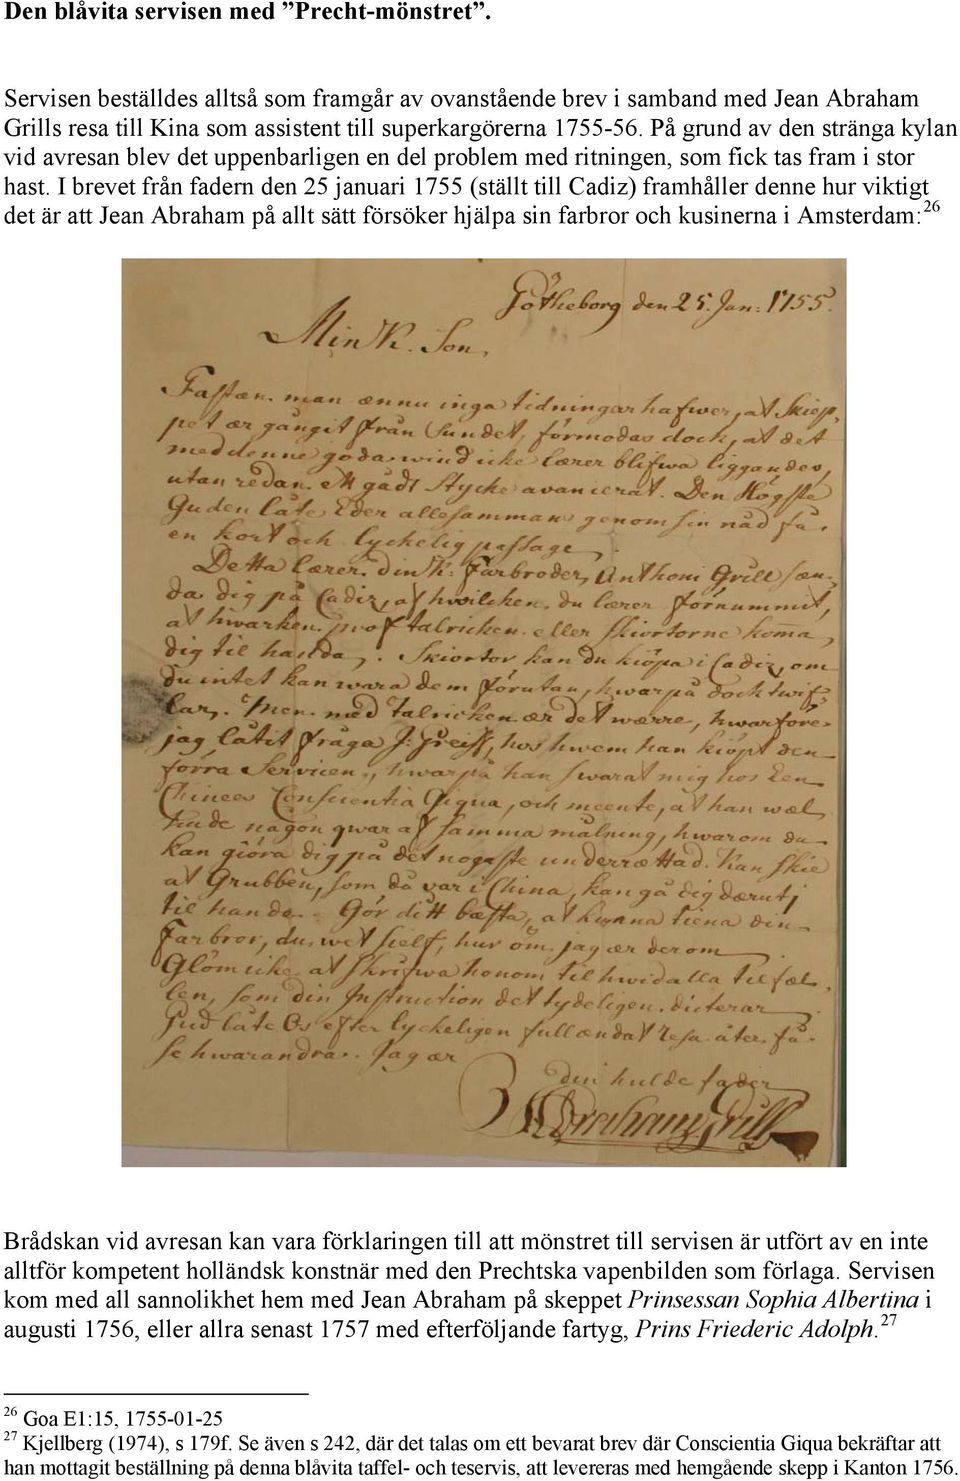 Den blåvita servisen med ”Precht-mönstret”.
Servisen beställdes alltså som framgår av ovanstående brev i samband med Jean Abraham
Grills resa till Kina som assistent till superkargörerna 1755-56. På grund av den stränga kylan
vid avresan blev det uppenbarligen en del problem med ritningen, som fick tas fram i stor
hast. I brevet från fadern den 25 januari 1755 (ställt till Cadiz) framhåller denne hur viktigt
det är att Jean Abraham på allt sätt försöker hjälpa sin farbror och kusinerna i Amsterdam:26
Götheborg den 25. Jan: 1755.
Min K. Son,
Fastæn man ænnu inga tidningar hafwer, at Skiep-
pet ær gångit från Sundet, förmodas dock, at det
med denne goda wind icke lærer blifwa liggandes,
utan redan ett gådt stycke avancerat. Den Högste
Guden låte Eder allesamman genom sin nåd få
en kort och lyckelig passage.
Detta lærer din K: Farbroder, Anthoni Grill sæn-
da dig på Cadiz, af hwilcken du lærer förnummit,
at hwarken prof talricken eller skiortorne koma
dig til handa. Skiortor kan du kiöpa i Cadiz, om
du intet kan wara dem förutan, hwarpå dock twif-
lar. Men med Talricken ær det wærre, hwarföre
jag låtit fråga J: Greiff, hos hwem han kiöpt den
förra Servicen, hwarpå han swarat mig hos Een
Chinees Conscientia Giqua, och meente, at han wæl
hade någon qwar af samma målning, hwarom du
kan giöra dig på det nogaste underrættad. Kan skie
at Grubben, som då var i China, kan gå dig dærutj
til hande. Gör ditt bæsta, at kunna tiena din
Farbror, du wet sielf, hur öm jag ær derom
Glöm icke at skrifwa honom til hwid alla tilfæl-
len, som din Instruction det tydeligen dicterar
Gud låte Os efter lyckeligen fullændat resa åter få
se hwarandra. Jag ær
din hulde fader
Abraham Grill
Brådskan vid avresan kan vara förklaringen till att mönstret till servisen är utfört av en inte
alltför kompetent holländsk konstnär med den Prechtska vapenbilden som förlaga. Servisen
kom med all sannolikhet hem med Jean Abraham på skeppet Prinsessan Sophia Albertina i
augusti 1756, eller allra senast 1757 med efterföljande fartyg, Prins Friederic Adolph.27
26 Goa E1:15, 1755-01-25
27 Kjellberg (1974), s 179f. Se även s 242, där det talas om ett bevarat brev där Conscientia Giqua bekräftar att
han mottagit beställning på denna blåvita taffel- och teservis, att levereras med hemgående skepp i Kanton 1756.